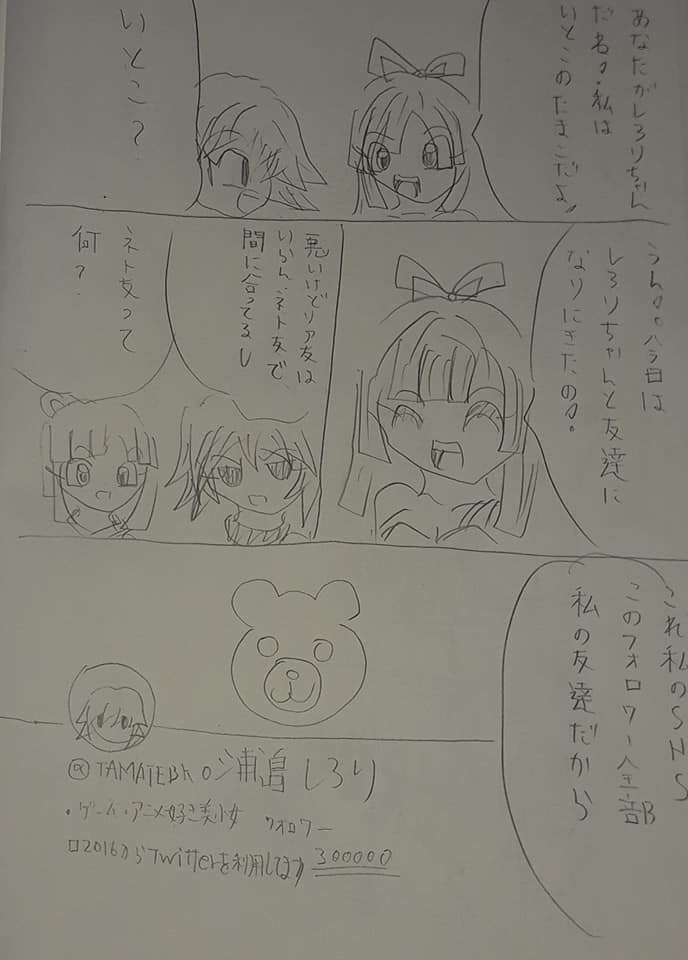 あなたがしろりちゃん
だね。私は
いとこのたまこだよ
いとこ?
うん。今日は
しろりちゃんと友達に
なりにきたの。
悪いけどリア友は
いらん、ネト友で、
間に合ってるし
ネト友って
何?
これ私のSNS
このフォロワー全部
私の友達だから
@TAMATEBAO 浦島しろり
・ゲーム・アニメ好き美少女 フォロワー
2016からTwitterを利用してます 300000